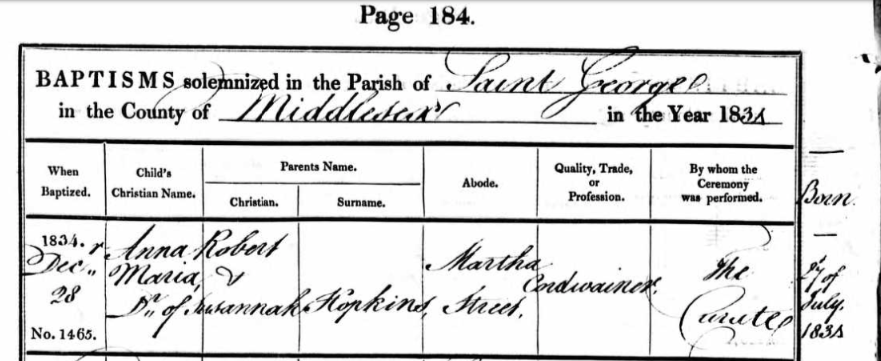 Page 184.
BAPTISMS solemnized in the Parish of Saint George
in the County of Middlesex in the Year 1834
When Baptized.
Child's Christian Name.
Parents Name.
Christian.
Surname.
Abode.
Quality, Trade, or Profession.
By whom the Ceremony was performed.
Born
1834.
Decr
28
No. 1465.
Anna
Maria,
Dr. of
Robert
&
Susannah
Hopkins,
Martha
Street,
Cordwainer.
The
Curate
27 of
July,
1834